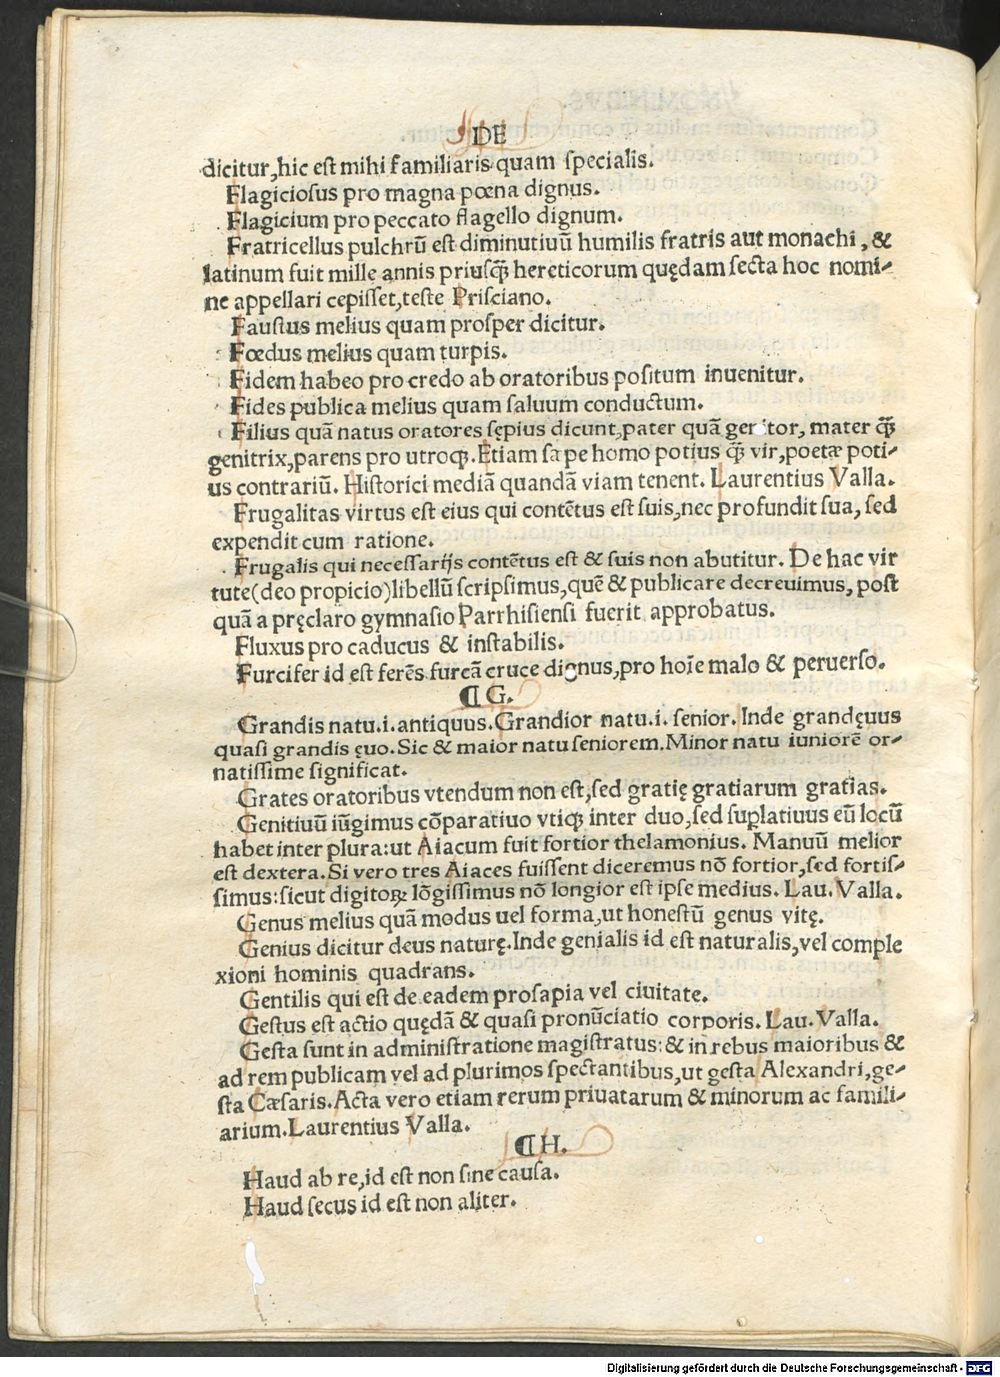 DE
dicitur,hic est mihi familiaris quam specialis.
Flagiciosus pro magna pœna dignus.
Flagicium pro peccato flagello dignum.
Fratricellus pulchrū est diminutiuū humilis fratris aut monachi, &
latinum fuit mille annis priusq̃ hereticorum quędam secta hoc nomi-
ne appellari cepisset,teste Prisciano.
Faustus melius quam prosper dicitur.
Fœdus melius quam turpis.
Fidem habeo pro credo ab oratoribus positum inuenitur.
Fides publica melius quam saluum conductum.
Filius quā natus oratores sępius dicunt,pater quā genitor, mater q̃
genitrix,parens pro utroq;.Etiam sæpe homo potius q̃ vir,poetæ poti-
us contrariū. Historici mediā quandā viam tenent. Laurentius Valla.
Frugalitas virtus est eius qui contētus est suis,nec profundit sua, sed
expendit cum ratione.
Frugalis qui necessarijs contētus est & suis non abutitur. De hac vir
tute(deo propicio)libellū scripsimus,quē & publicare decreuimus, post
quā a pręclaro gymnasio Parrhisiensi fuerit approbatus.
Fluxus pro caducus & instabilis.
Furcifer id est ferēs furcā cruce dignus,pro hoīe malo & peruerso.
¶ G.
Grandis natu.i.antiquus.Grandior natu.i. senior. Inde grandęuus
quasi grandis ęuo. Sic & maior natu seniorem.Minor natu iuniorē or-
natissime significat.
Grates oratoribus vtendum non est,sed gratię gratiarum gratias.
Genitiuū iūgimus cōparatiuo vtiq; inter duo,sed suplatiuus eū locū
habet inter plura:ut Aiacum fuit fortior thelamonius. Manuū melior
est dextera. Si vero tres Aiaces fuissent diceremus nō fortior,sed fortis-
simus:sicut digitoꝝ lōgissimus nō longior est ipse medius. Lau. Valla.
Genus melius quā modus uel forma,ut honestū genus vitę.
Genius dicitur deus naturę.Inde genialis id est naturalis,vel comple
xioni hominis quadrans.
Gentilis qui est de eadem prosapia vel ciuitate.
Gestus est actio quędā & quasi pronūciatio corporis. Lau. Valla.
Gesta sunt in administratione magistratus:& in rebus maioribus &
ad rem publicam vel ad plurimos spectantibus,ut gesta Alexandri,ge-
sta Cæsaris.Acta vero etiam rerum priuatarum & minorum ac famili-
arium.Laurentius Valla.
¶ H.
Haud ab re,id est non sine causa.
Haud secus id est non aliter.
Digitalisierung gefördert durch die Deutsche Forschungsgemeinschaft - DFG